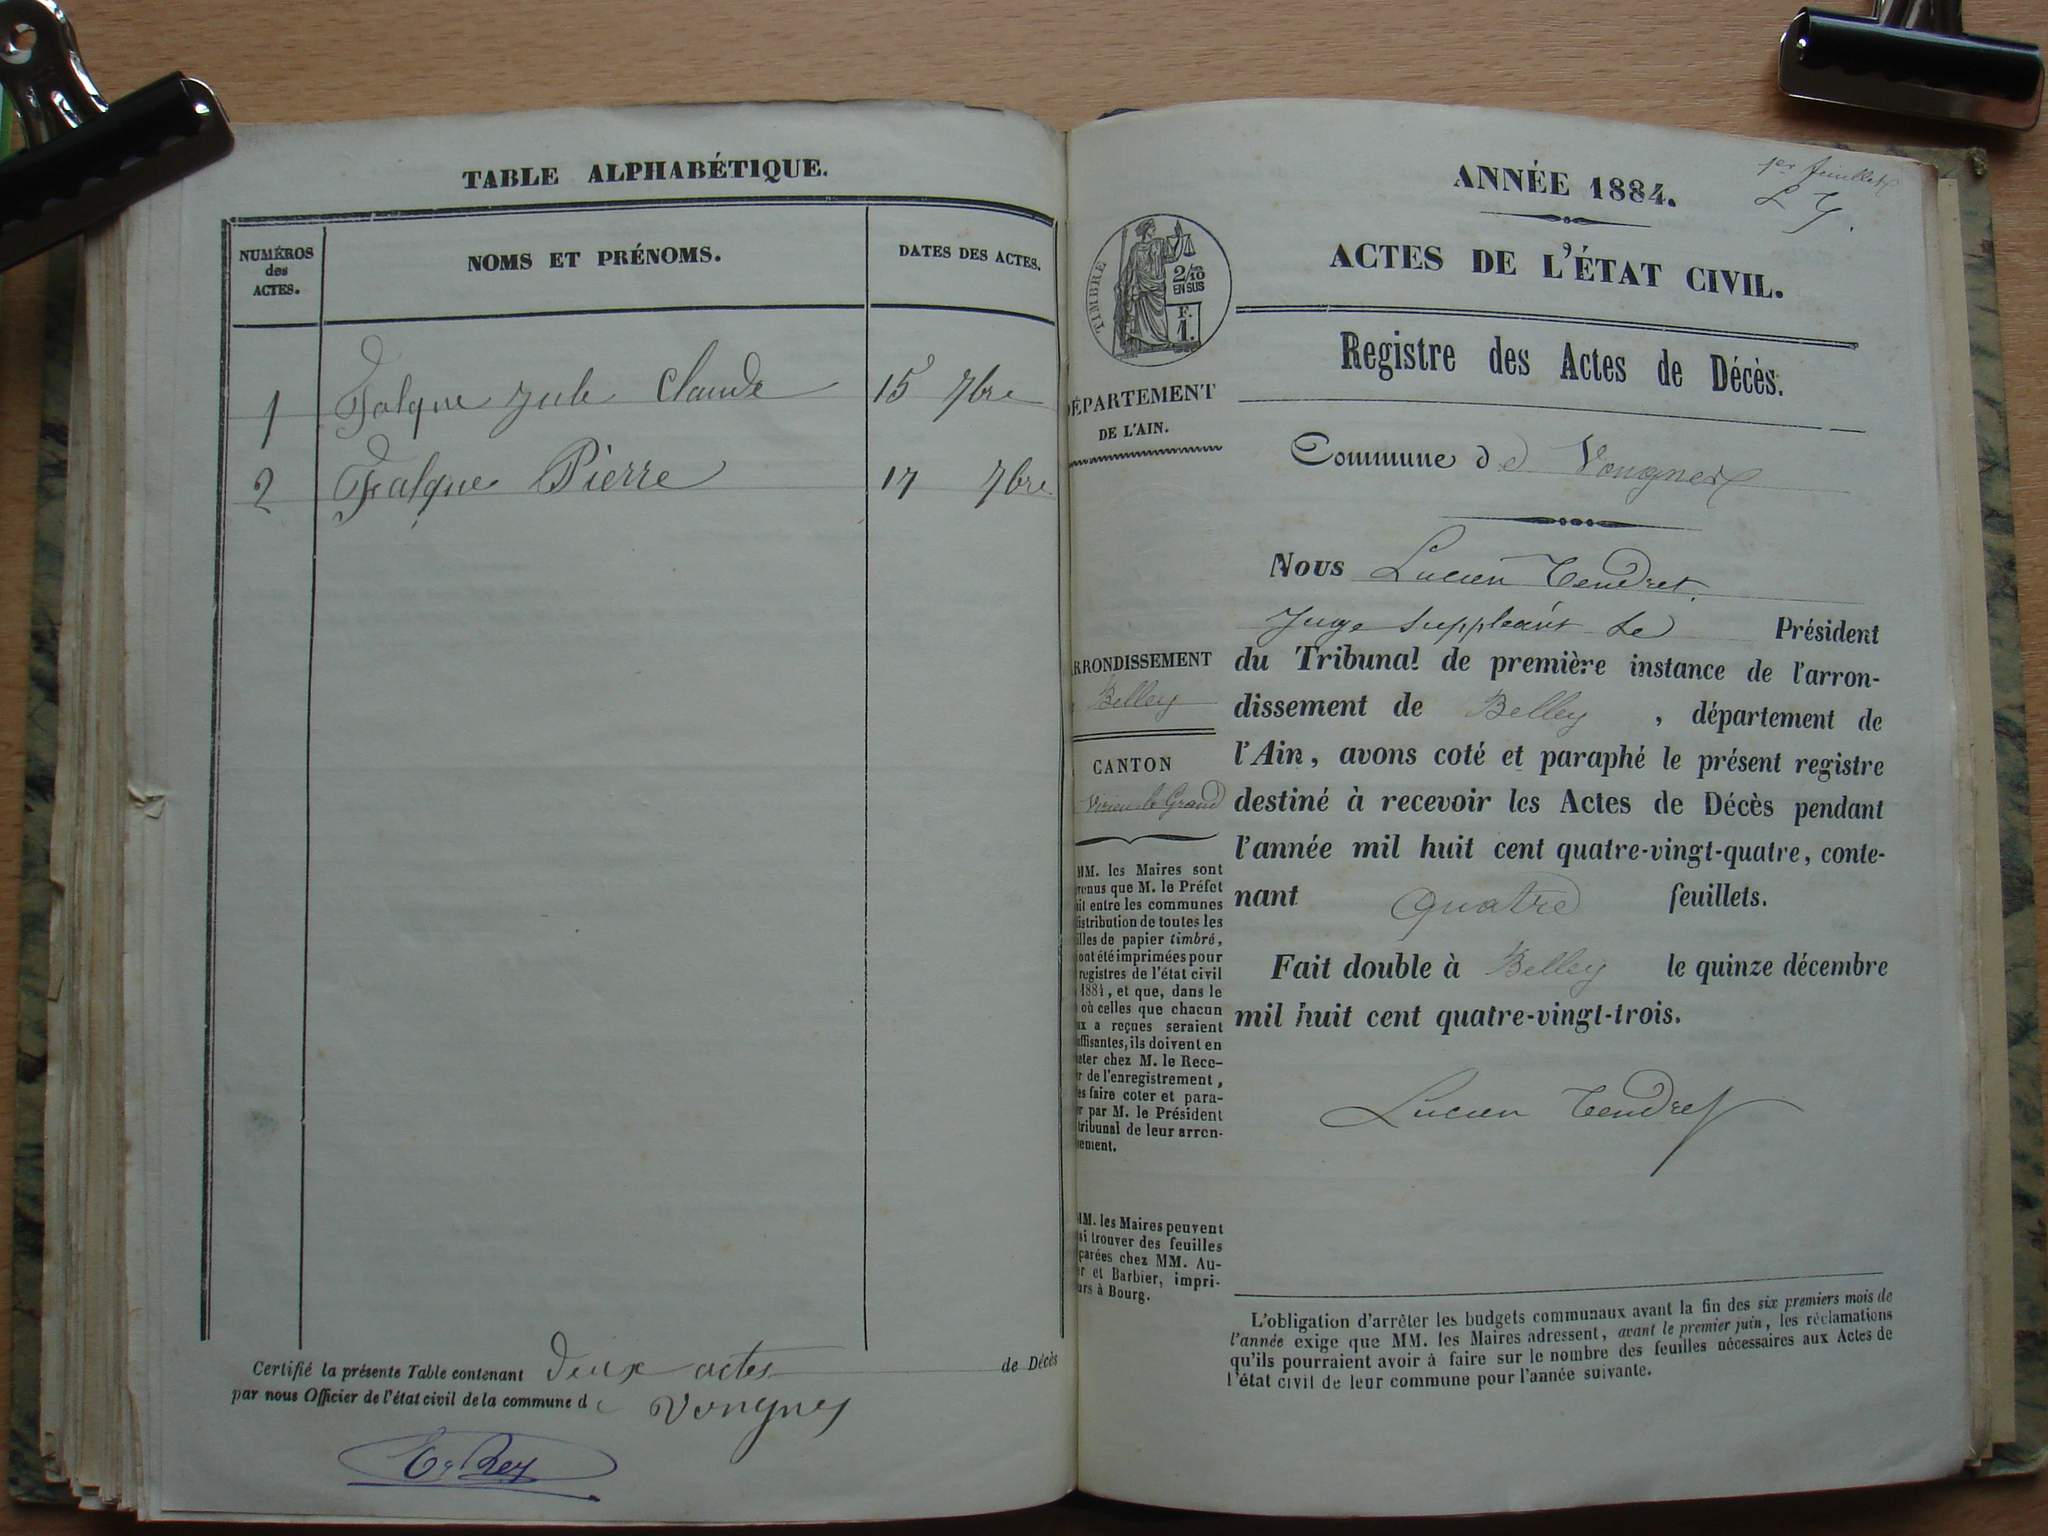 TABLE ALPHABÉTIQUE.
NUMÉROS
des
ACTES.
NOMS ET PRÉNOMS.
DATES DES ACTES.
1 Falque Jule Claude 15 7bre
2 Falque Pierre 17 7bre
Certifié la présente Table contenant deux actes de Décès
par nous Officier de l'état civil de la commune de Vongnes
Rey
1er feuillet
L T.
ANNÉE 1884.
ACTES DE L'ÉTAT CIVIL.
Registre des Actes de Décès.
TIMBRE
2/10
EN SUS
F.
1.
DÉPARTEMENT
DE L'AIN.
Commune de Vongnes
Nous Lucien Tendret.
Juge suppléant le Président
du Tribunal de première instance de l'arron-
dissement de Belley, département de
l'Ain, avons coté et paraphé le présent registre
destiné à recevoir les Actes de Décès pendant
l'année mil huit cent quatre-vingt-quatre, conte-
nant quatre feuillets.
Fait double à Belley le quinze décembre
mil huit cent quatre-vingt-trois.
Lucien Tendret
RRONDISSEMENT
Belley
CANTON
Virieu-le-Grand
MM. les Maires sont
venus que M. le Préfet
ait entre les communes
istribution de toutes les
illes de papier timbré,
ont été imprimées pour
registres de l'état civil
1884, et que, dans le
où celles que chacun
ux a reçues seraient
uffisantes, ils doivent en
heter chez M. le Rece-
r de l'enregistrement,
es faire coter et para-
er par M. le Président
tribunal de leur arron-
ement.
MM. les Maires peuvent
si trouver des feuilles
parées chez MM. Au-
er et Barbier, impri-
urs à Bourg.
L'obligation d'arrêter les budgets communaux avant la fin des six premiers mois de
l'année exige que MM. les Maires adressent, avant le premier juin, les réclamations
qu'ils pourraient avoir à faire sur le nombre des feuilles nécessaires aux Actes de
l'état civil de leur commune pour l'année suivante.